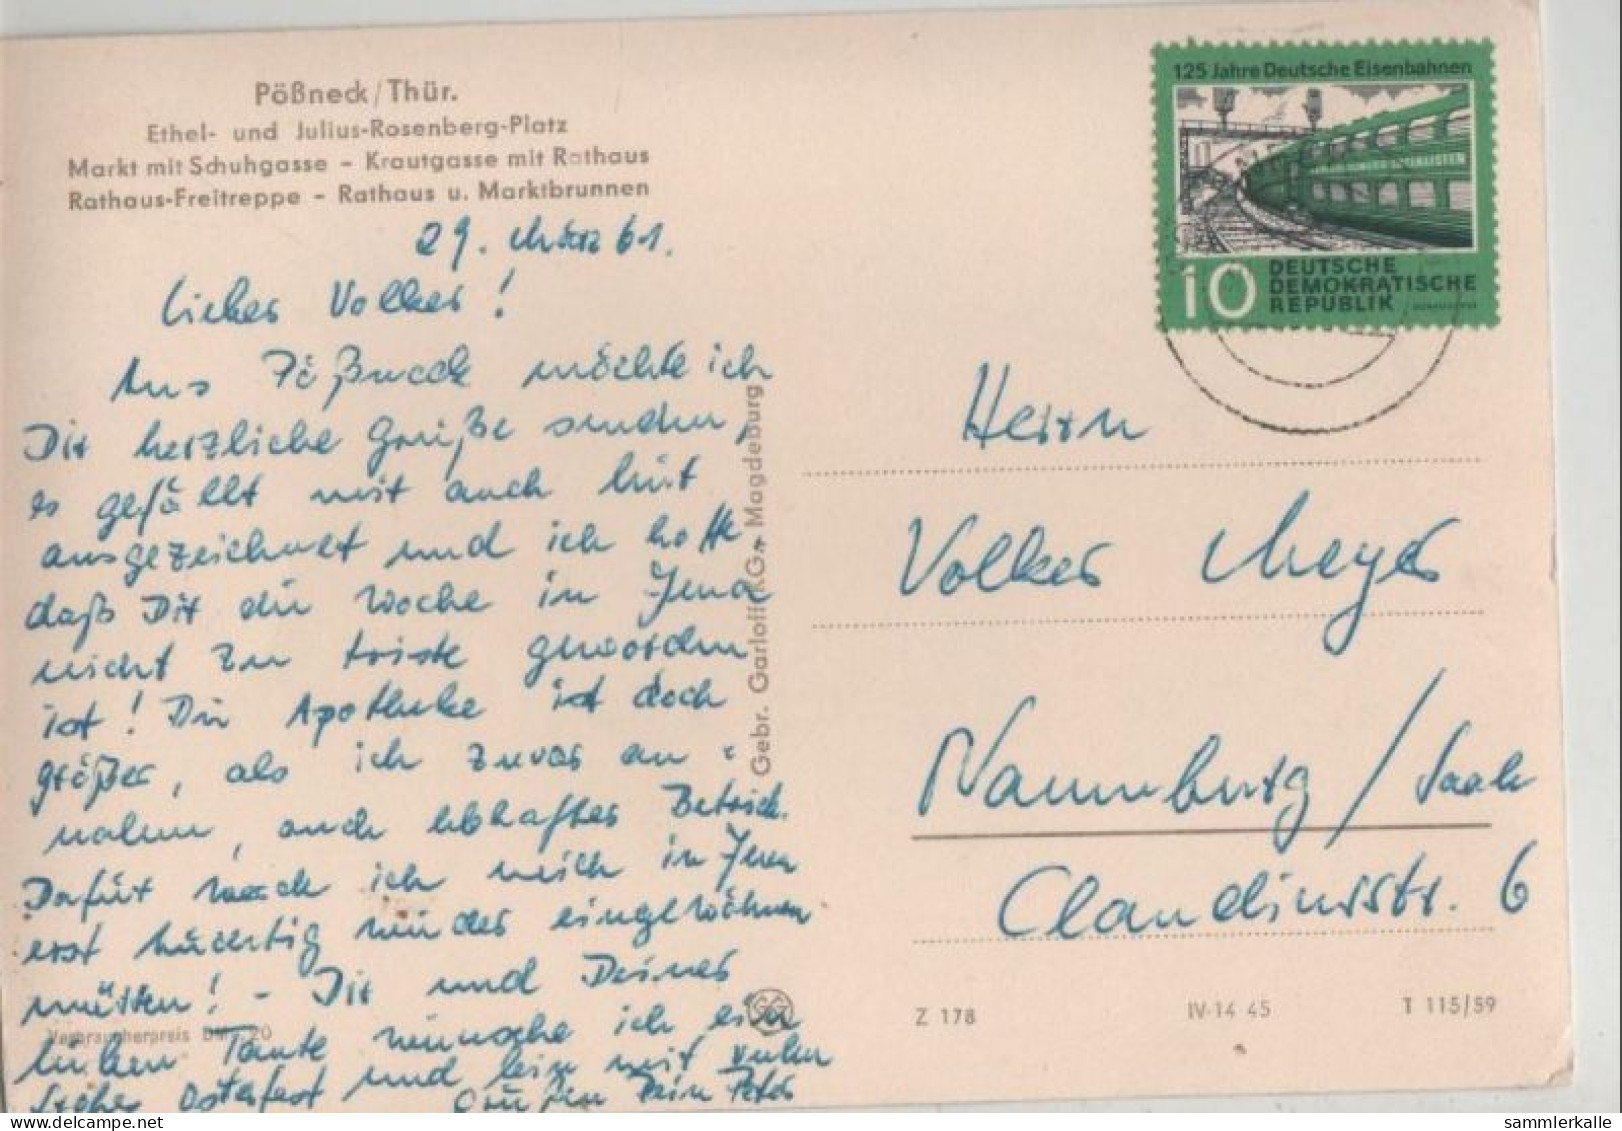 Pößneck/Thür.
Ethel- und Julius-Rosenberg-Platz
Markt mit Schuhgasse – Krautgasse mit Rathaus
Rathaus-Freitreppe – Rathaus u. Marktbrunnen
29. März 61.
Lieber Volker!
Aus Pößneck möchte ich
Dir herzliche Grüße senden,
es gefällt mir auch hier
ausgezeichnet und ich hoffe
daß Dir die Woche in Jena
nicht zu triste geworden
ist! Die Apotheke ist doch
größer, als ich zuvor an-
nahm, auch lebhafter Betrieb.
Dafür werde ich mich in Jena
erst tüchtig wieder eingewöhnen
müssen! - Dir und Deiner
lieben Tante wünsche ich ein
frohes Osterfest und bin mit vielen
Grüßen Dein Peter
Verbraucherpreis DM -,20
Gebr. Garloff KG., Magdeburg
125 Jahre Deutsche Eisenbahnen
10 DEUTSCHE
DEMOKRATISCHE
REPUBLIK
Herrn
Volker Meyer
Naumburg/Saale
Claudiusstr. 6
Z 178 IV-14 45 T 115/59
sammlerkalle @ www.delcampe.net